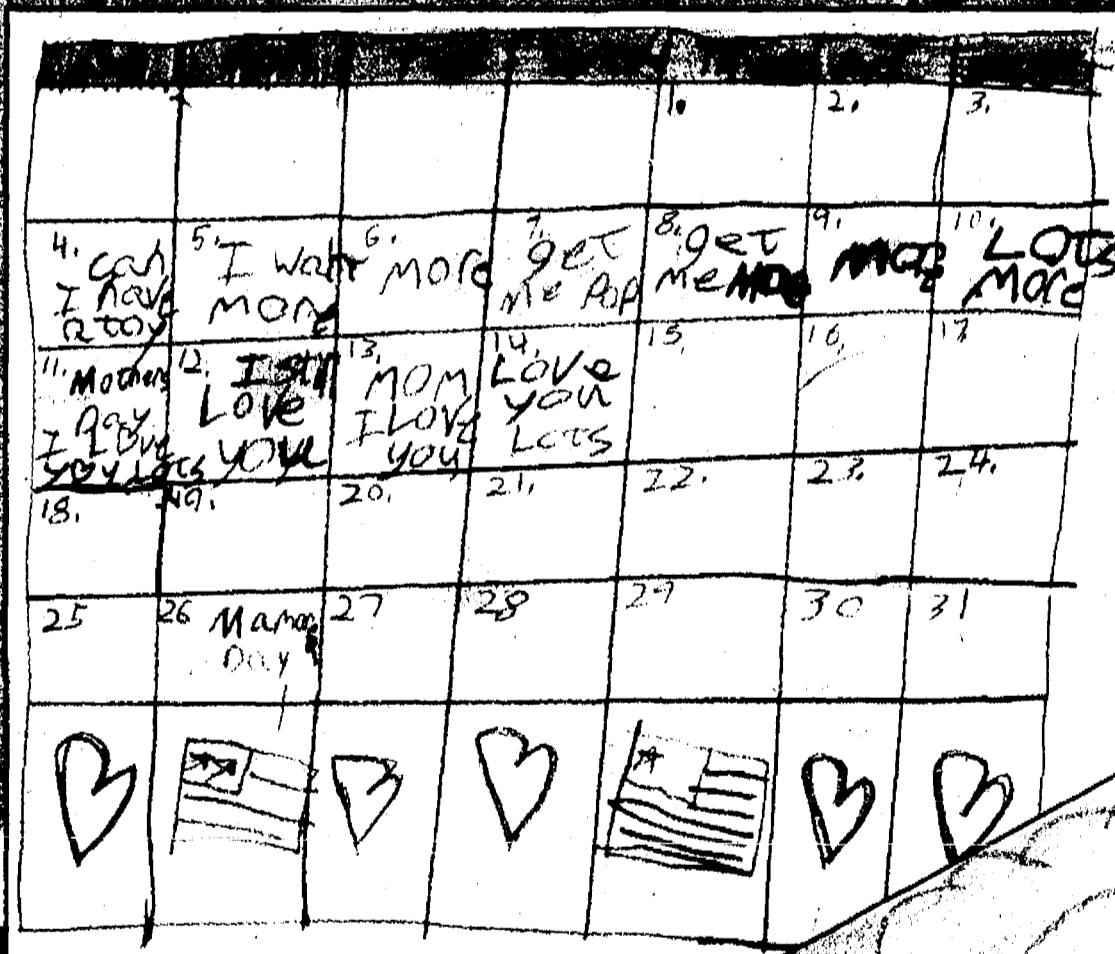 1. 2. 3.
4. can
I have
a toy
5. I want
MORE
6. MORE
7. get
me Pop
8. get
me MORE
9. MORE
10. LOTS
MORE
11. Mothers
Day
I LOVE
YOU LOTS
12. I still
LOVE
YOU
13. MOM
I LOVE
you
14. LOVE
you
LOTS
15. 16. 17.
18. 19. 20. 21. 22. 23. 24.
25 26 27 28 29 30 31
Day